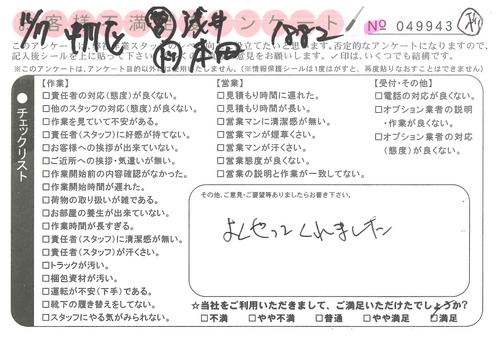 お客様不満足アンケート
№ 049943
浅井
1882
このアンケートは
立てたいと思います。否定的なアンケートになりますので、
記入後シールを上に貼って下さい
意見をお願いします。✓印は、いくつでも結構です。
※このアンケートは、アンケート目的以外には使用いたしません。(※情報保護シールは1度はがすと、再度貼りなおすことはできません。)
チェックリスト
【作業】
□責任者の対応(態度)が良くない。
□他のスタッフの対応(態度)が良くない。
□作業を見ていて不安がある。
□責任者(スタッフ)に好感が持てない。
□お客様への挨拶が出来ていない。
□ご近所への挨拶・気遣いが無い。
□作業開始前の内容確認がなかった。
□作業開始時間が遅れた。
□荷物の取り扱いが雑である。
□お部屋の養生が出来ていない。
□作業時間が長すぎる。
□責任者(スタッフ)に清潔感が無い。
□責任者(スタッフ)が汗くさい。
□トラックが汚い。
□梱包資材が汚い。
□運転が不安(下手)である。
□靴下の履き替えをしてない。
□スタッフにやる気がみられない。
【営業】
□見積もり時間に遅れた。
□見積もり時間が長い。
□営業マンに清潔感が無い。
□営業マンが煙草くさい。
□営業マンが汗くさい。
□営業態度が良くない。
□営業の説明と作業が一致してない。
【受付・その他】
□電話の対応が良くない。
□オプション業者の説明
・作業が良くない。
□オプション業者の対応
(態度)が良くない。
その他、ご意見・ご要望等ありましたらお書き下さい。
よくやってくれました
☆当社をご利用いただきまして、ご満足いただけたでしょうか?
□不満 □やや不満 □普通 □やや満足 ☑満足